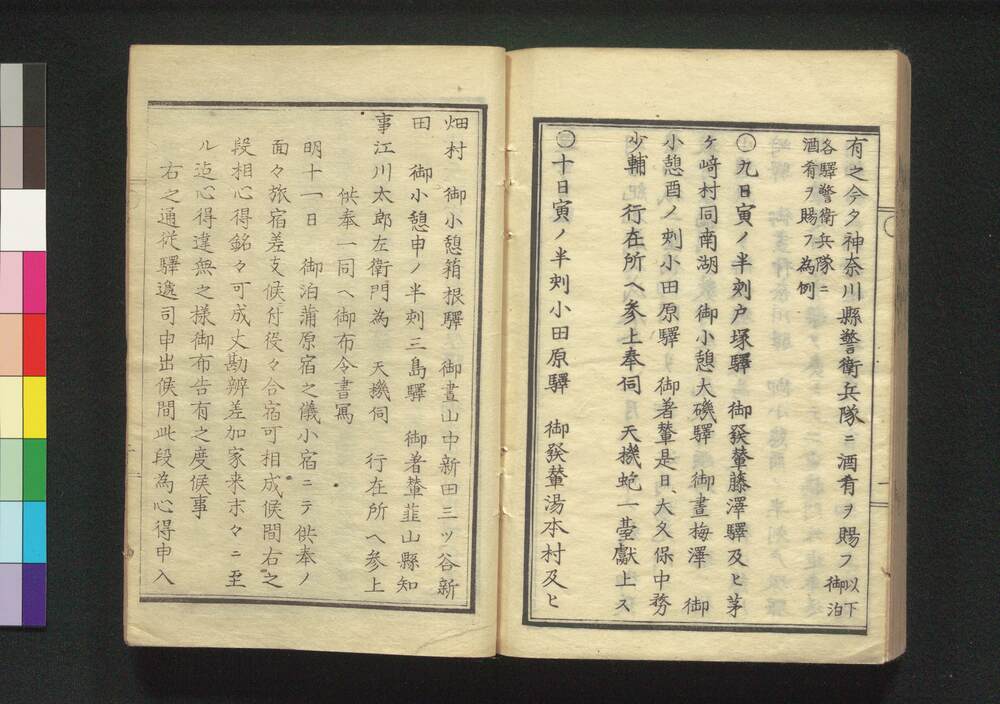 有之今夕神奈川縣警衛兵隊ニ酒肴ヲ賜フ以下御泊
各驛警衛兵隊ニ
酒肴ヲ賜フ為例
〇九日寅ノ半刻戸塚驛　御發輦藤澤驛及ヒ茅
ケ﨑村同南湖　御小憩大磯驛　御晝梅澤　御
小憩酉ノ刻小田原驛　御著輦是日、大久保中務
少輔　行在所ヘ参上奉伺　天機蚫一臺獻上ス
〇十日寅ノ半刻小田原驛　御發輦湯本村及ヒ
畑村　御小憩箱根驛　御晝山中新田三ツ谷新
田　御小憩申ノ半刻三島驛　御著輦韮山縣知
事江川太郎左衛門為　天機伺　行在所ヘ参上
供奉一同ヘ御布令書寫
明十一日　御泊蒲原宿之儀小宿ニテ供奉ノ
面々旅宿差支候付役々合宿可相成候間右之
段相心得銘々可成丈勘辨差加家来末々ニ至
ル迠心得違無之様御布告有之度候事
右之通従驛遞司申出候間此段為心得申入